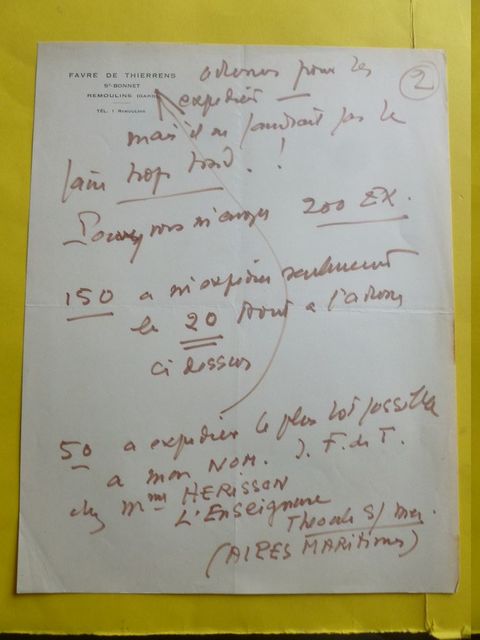 FAVRE DE THIERRENS
ST-BONNET
REMOULINS (GARD)
TÉL. 1 REMOULINS
2
adresses pour les
expédier
mais il ne faudrait pas le
faire trop tard. !
Pouvez vous m'envoyer 200 EX.
150 a m'expédier seulement
le 20 Aout a l'adresse
ci dessus
50 a expedier le plus tot possible
a mon NOM. J. F. de T.
chez Mme HERISSON
L'Enseignure
Theoule S/ mer.
(ALPES MARITIMES)